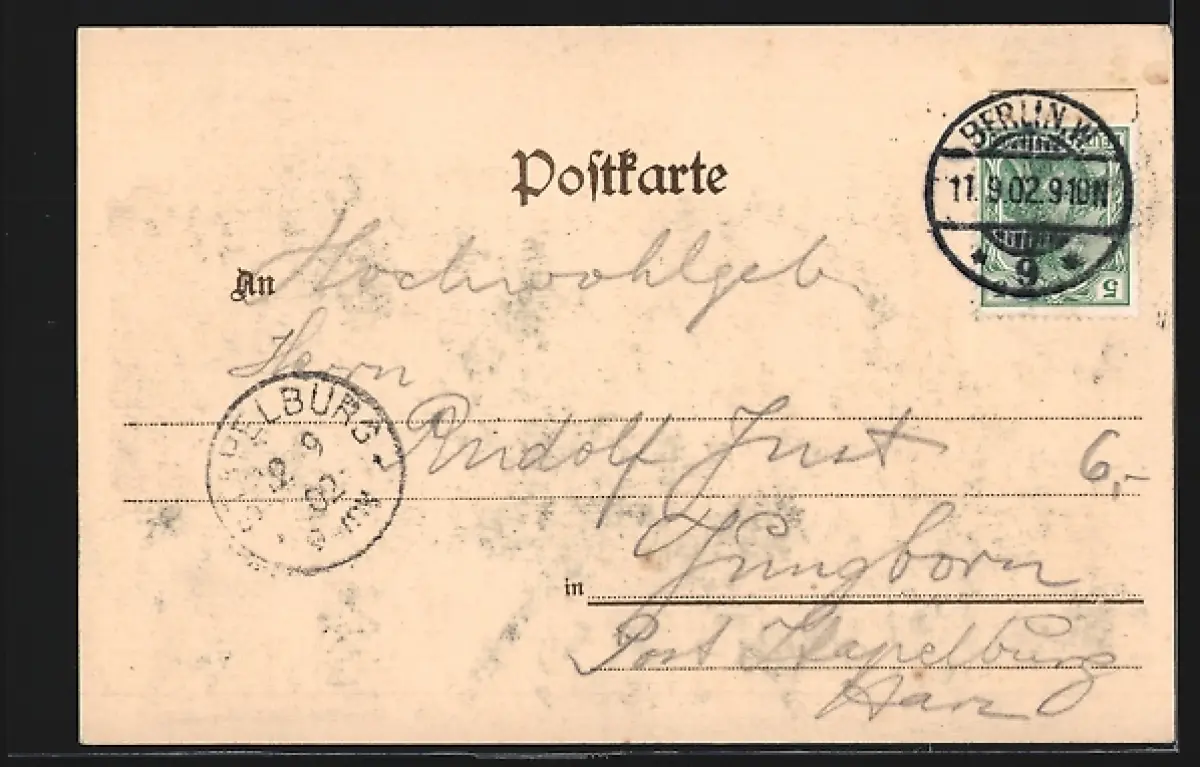 Postkarte
BERLIN.W.
11.9.02.9-10N
* 9 *
5
An Hochwohlgeb
Herrn
Rudolf Just
6,-
STAPELBURG
12 9
02
Jungborn
in
Post Stapelburg
Harz